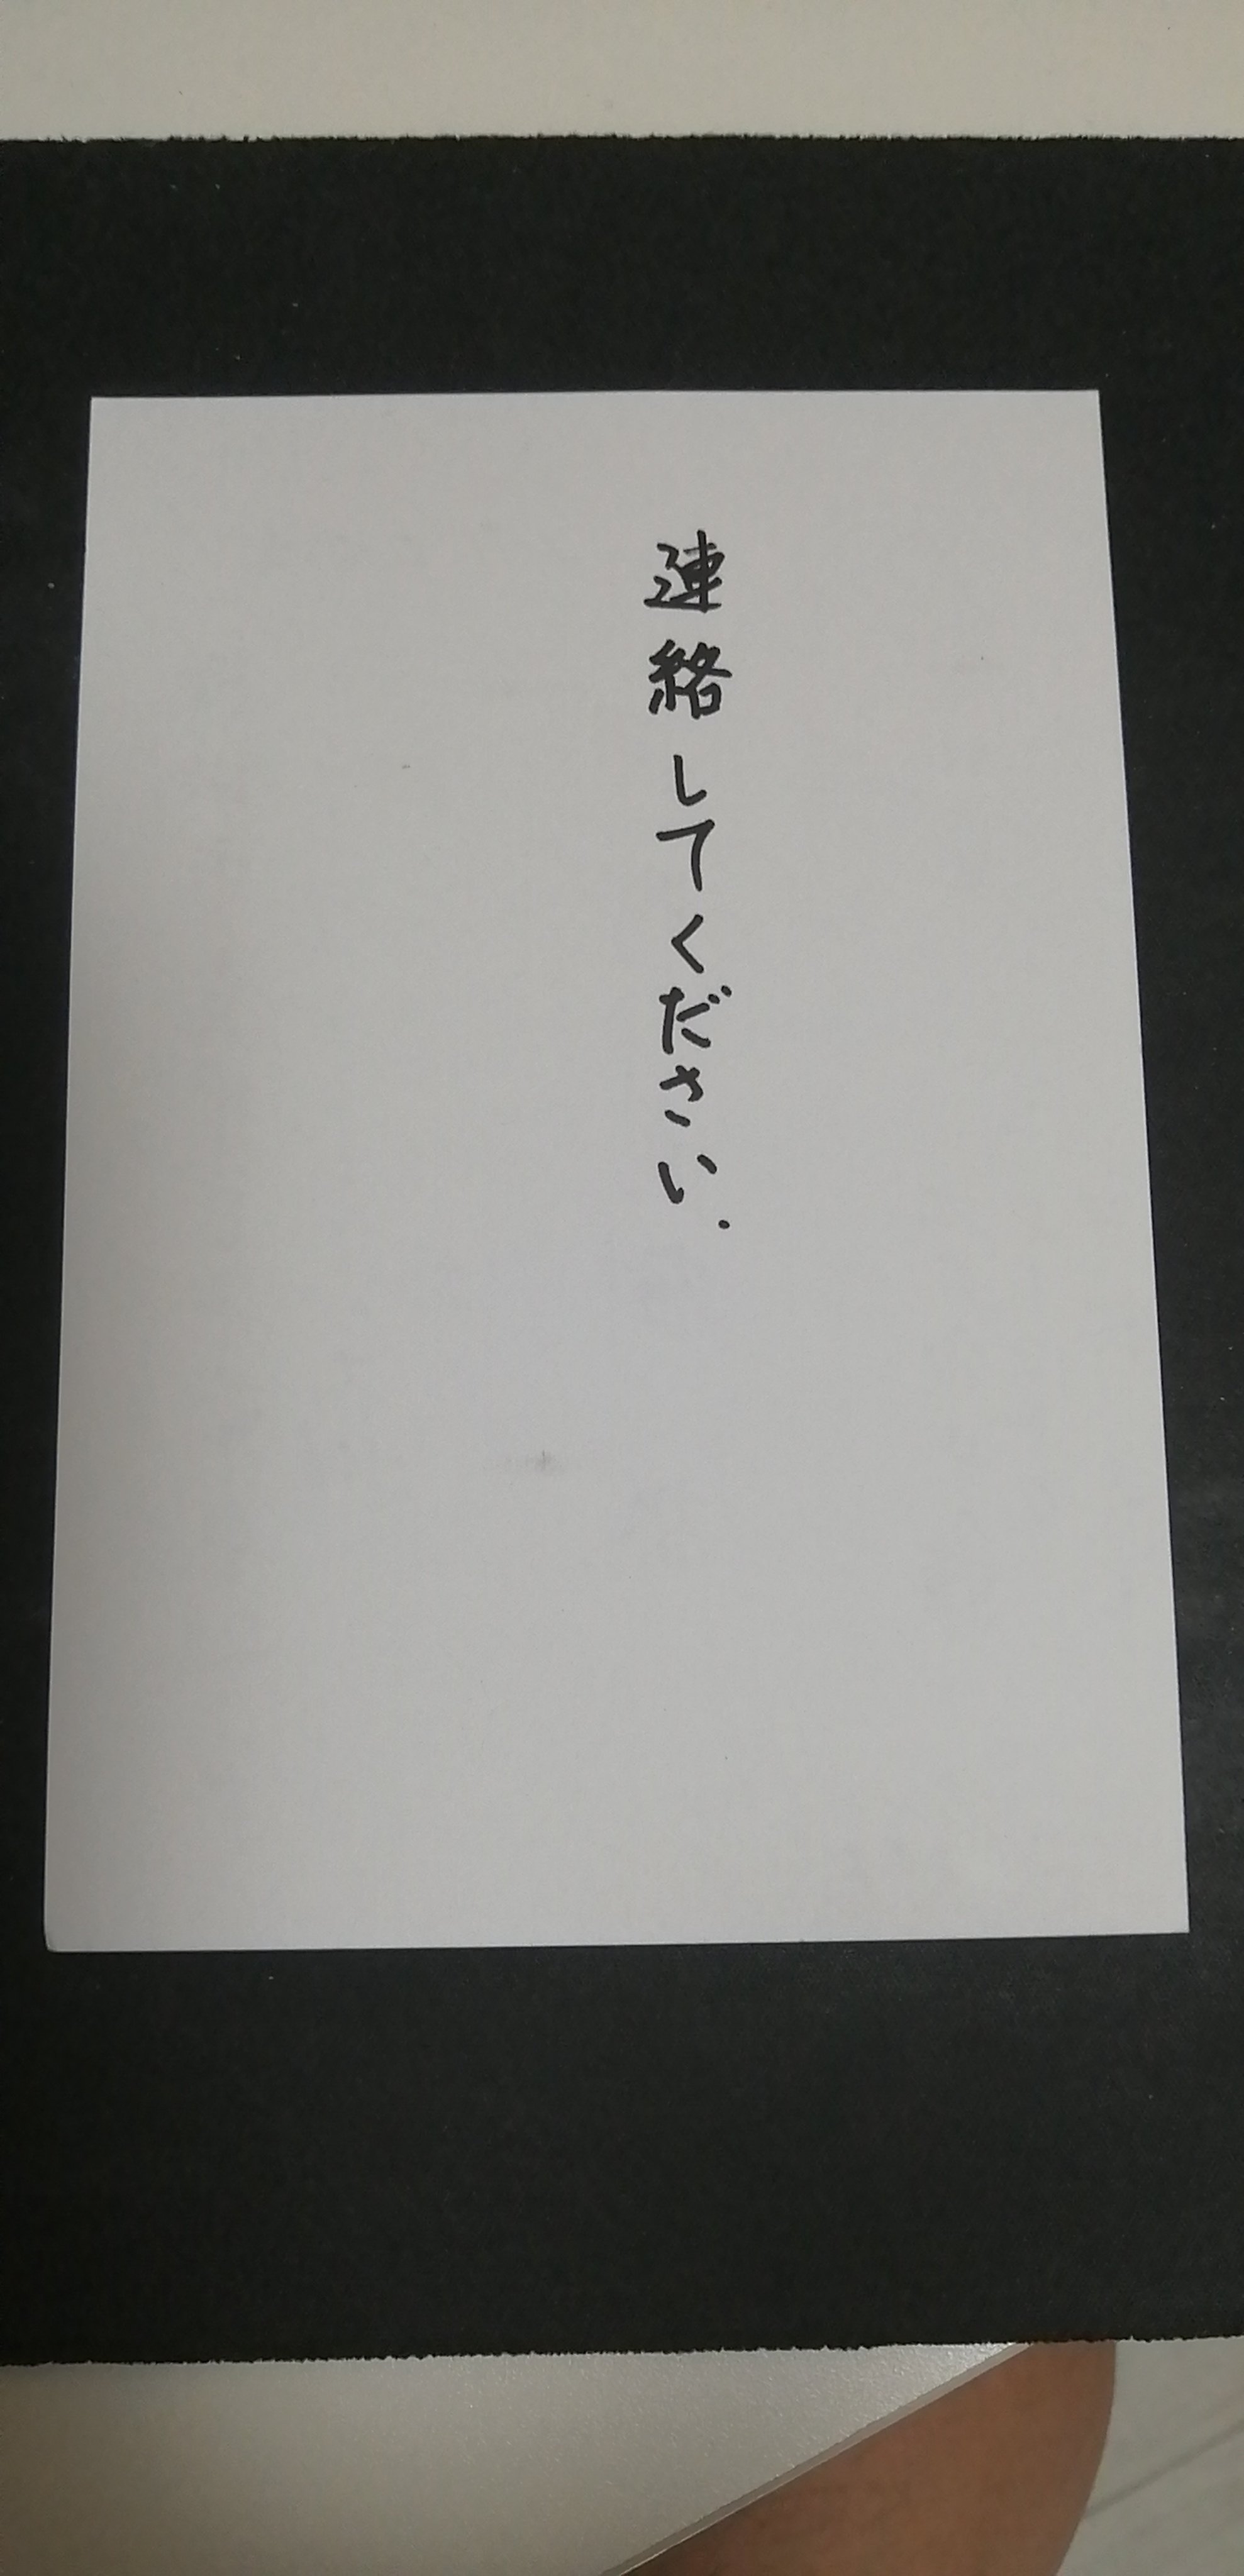 連絡してください.